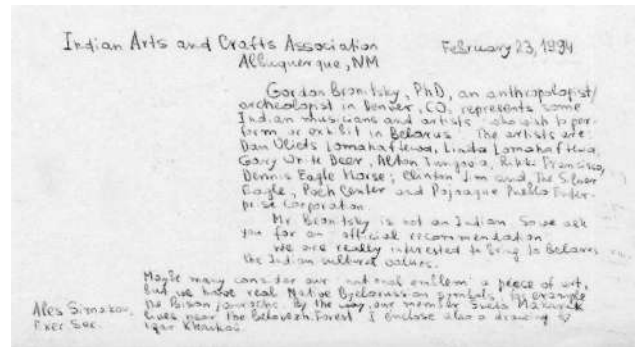 Indian Arts and Crafts Association February 23, 1994
Albuquerque, NM
Gordon Bronitsky, PhD, an anthropologist/
archeologist in Denver, CO, represents some
Indian musicians and artists who wish to per-
form or exhibit in Belarus. The artists are:
Dan Lomahaftewa, Linda Lomahaftewa,
Gary White Deer, Francisco,
Dennis Eagle Horse; Clinton Jim and The Silver
Eagle, Poeh Center and Pojoaque Pueblo Enter-
prise Corporation.
Mr. Bronitsky is not an Indian. So we ask
you for an official recommendation.
We are really interested to bring to Belarus
the Indian cultural values.
Maybe many consider our national emblem a piece of art,
but we have real Native Byelorussian symbols, for example
the Bison. By the way, our member
lives near the Belovezh Forest. I enclose also a drawing by
Ales Simakov,
Exec Sec. Igar